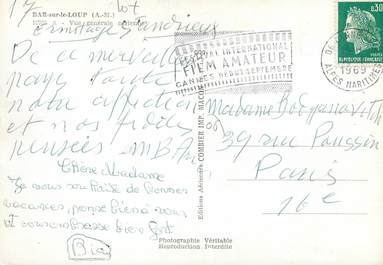 17
BAR-sur-le-LOUP (A.-M.)
Vue générale aérienne
Ermitage
De ce merveilleux
pays toute
notre affection
et nos fidèles
pensées MBA
Chère Madame
Je vous souhaite de bonnes
vacances, pense bien à vous
et vous embrasse bien fort
Bia
Photographie Véritable
Reproduction Interdite
Editions Aériennes COMBIER IMP. MACON
INTERNATIONAL
FILM AMATEUR
CANNES DEBUT SEPTEMBRE
0,30
1969
ALPES MARITIMES
Madame
39 rue Poussin
Paris
16e